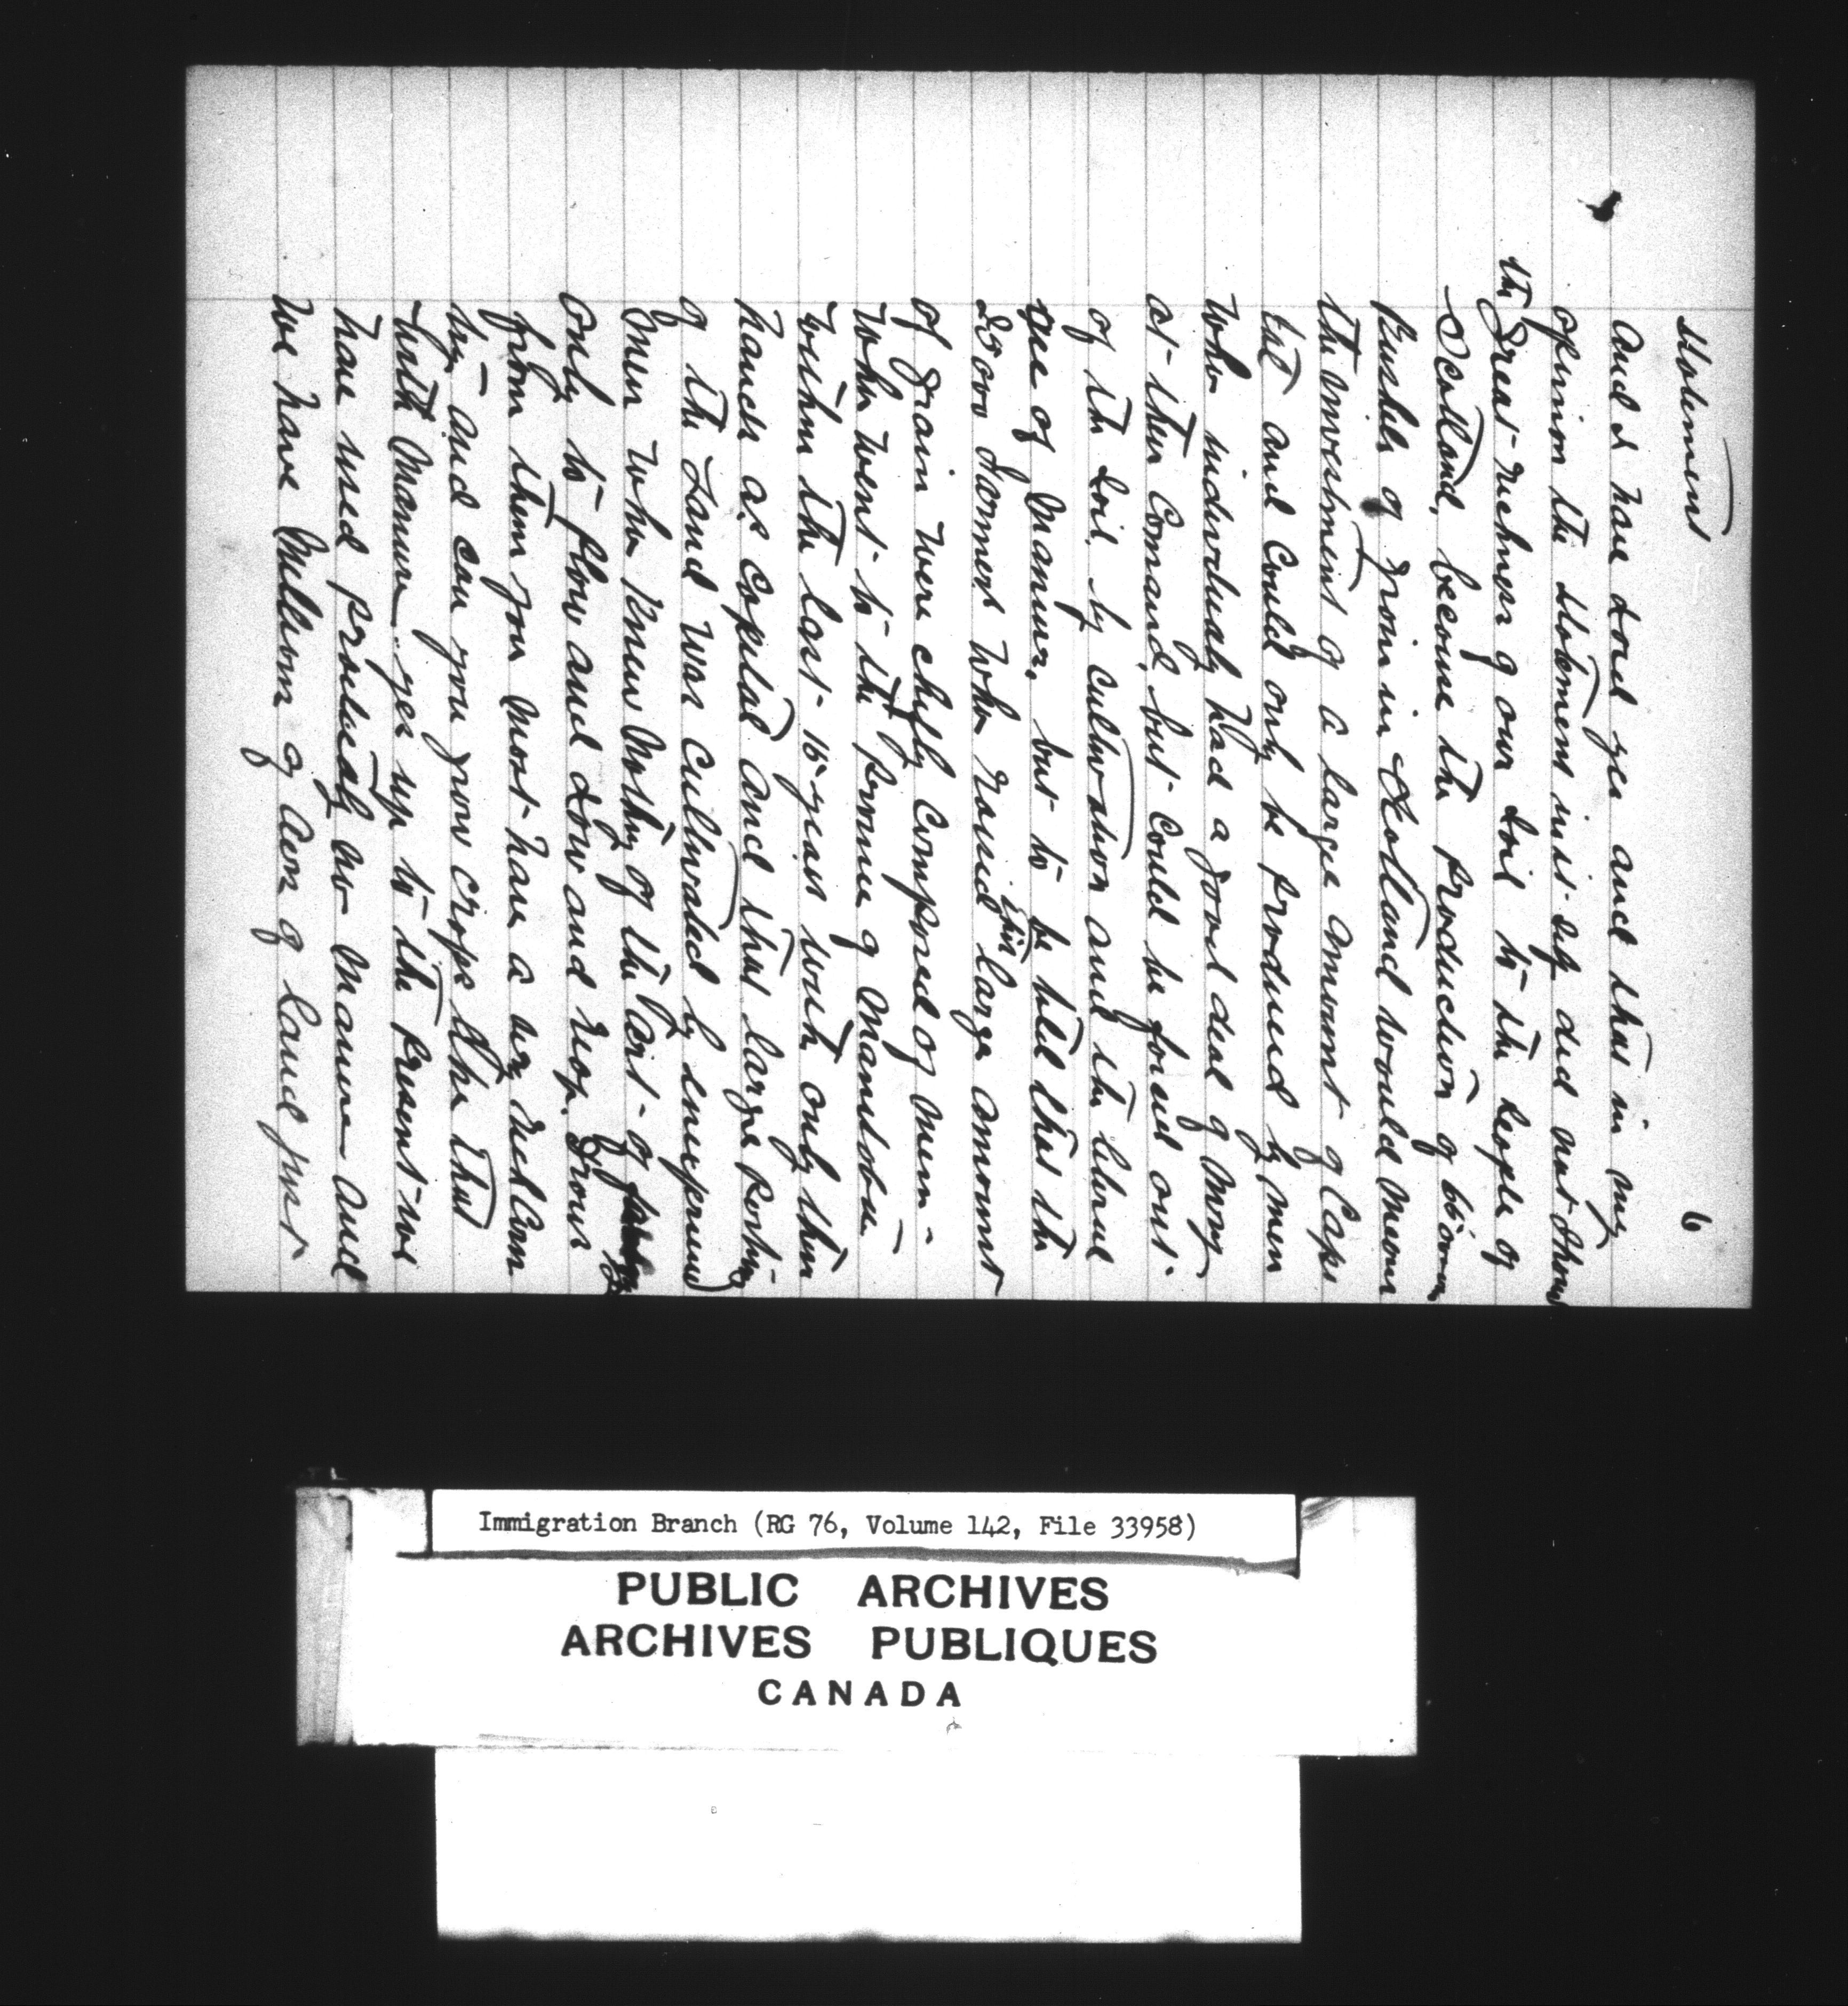 6
Statement
and I have said yes and that in my
opinion the statement itself did not show
the Great richness of our soil to the people of
Scotland, because the production of 60
Bushels of grain in Scotland would mean
the investment of a large amount of Capi
tal and could only be produced by men
who individualy had a good deal of mony
at their Comand, but could be forced out
of the soil by cultivation and the liberal
use of manure, but to be told that the
25000 Farmers who raised this large amount
of Grain were chifly Composed of men -
who went to the Provine of Manitoba
within the last 15 years with only their
hands as capital and that large portion
of the Land was cultivated by
men who knew Nothing of the art of
only to plow and sow and reap. Grows
from them you most have a very rich Coun
try - and can you grow crops like that
with Manure yes up to the present we
have used practicaly no manure and
we have Millions of acrs of land just
Immigration Branch (RG 76, Volume 142, File 33958)
PUBLIC ARCHIVES
ARCHIVES PUBLIQUES
CANADA